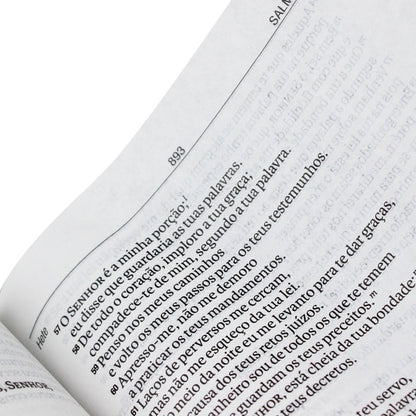 SALM
893
Hete
57 O SENHOR é a minha porção;
eu disse que guardaria as tuas palavras.
58 De todo o coração, imploro a tua graça;
compadece-te de mim, segundo a tua palavra.
59 Penso nos meus caminhos
e volto os meus passos para os teus testemunhos.
60 Apresso-me, não me demoro
a praticar os teus mandamentos.
61 Laços de perversos me cercam,
mas não me esqueço da tua lei.
meio da noite eu me levanto para te dar graças,
causa dos teus retos juízos.
nheiro sou de todos os que te temem
guardam os teus preceitos. m
OR, está cheia da tua bondade
us decretos.
u servo,
, SENHOR.